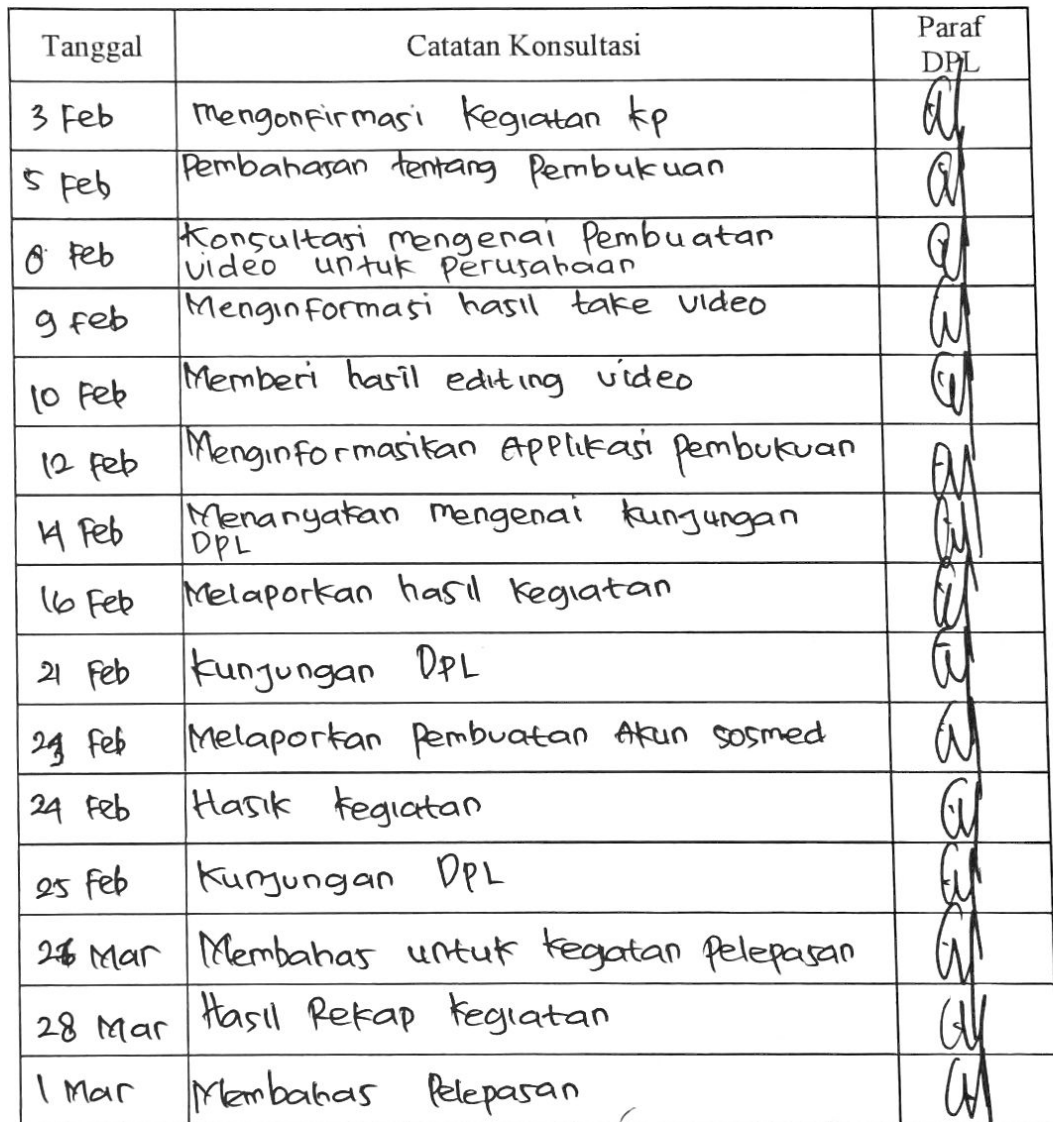 Tanggal Catatan Konsultasi Paraf
DPL
3 Feb Mengonfirmasi kegiatan kp
5 Feb Pembahasan tentang Pembukuan
8 Feb Konsultasi mengenai Pembuatan
video untuk perusahaan
9 feb Menginformasi hasil take video
10 Feb Memberi hasil editing video
12 Feb Menginformasikan Applikasi Pembukuan
14 Feb Menanyakan mengenai kunjungan
DPL
16 Feb Melaporkan hasil kegiatan
21 Feb kunjungan DPL
23 Feb Melaporkan Pembuatan Akun sosmed
24 Feb Hasik kegiatan
25 Feb Kunjungan DPL
Mar Membahas untuk kegatan Pelepasan
28 Mar Hasil Rekap kegiatan
1 Mar Membahas Pelepasan